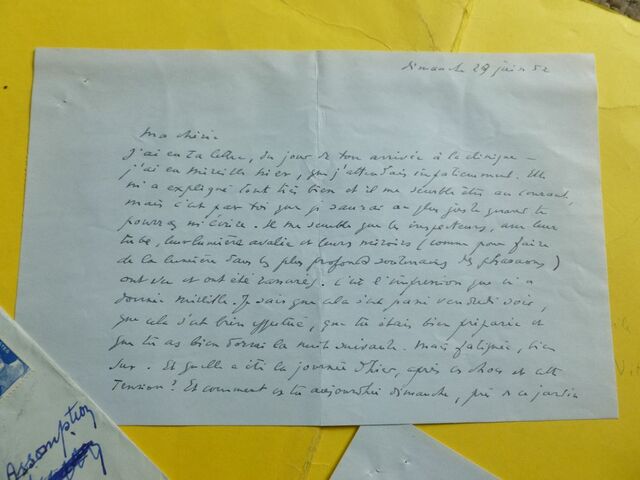 dimanche 29 juin 52
Ma chérie
J'ai eu ta lettre, du jour de ton arrivée à la clinique –
j'ai eu Mireille hier, que j'attendais impatiemment. Elle
m'a expliqué tout très bien et il me semble être au courant,
mais c'est par toi que je saurai au plus juste quand tu
pourras m'écrire. Il me semble que les inspecteurs, avec leur
tube, leur lumière avalée et leurs miroirs (comme pour faire
de la lumière dans les plus profonds souterrains des pharaons)
ont vu et ont été rassurés. C'est l'impression que m'a
donnée Mireille. Je sais que cela s'est passé vendredi soir,
que cela s'est bien effectué, que tu étais bien préparée et
que tu as bien dormi la nuit suivante. Mais fatiguée, bien
sûr. Et quelle a été la journée d'hier, après ce choc et cette
Tension? Et comment es tu aujourd'hui dimanche, près de ce jardin
Assomption